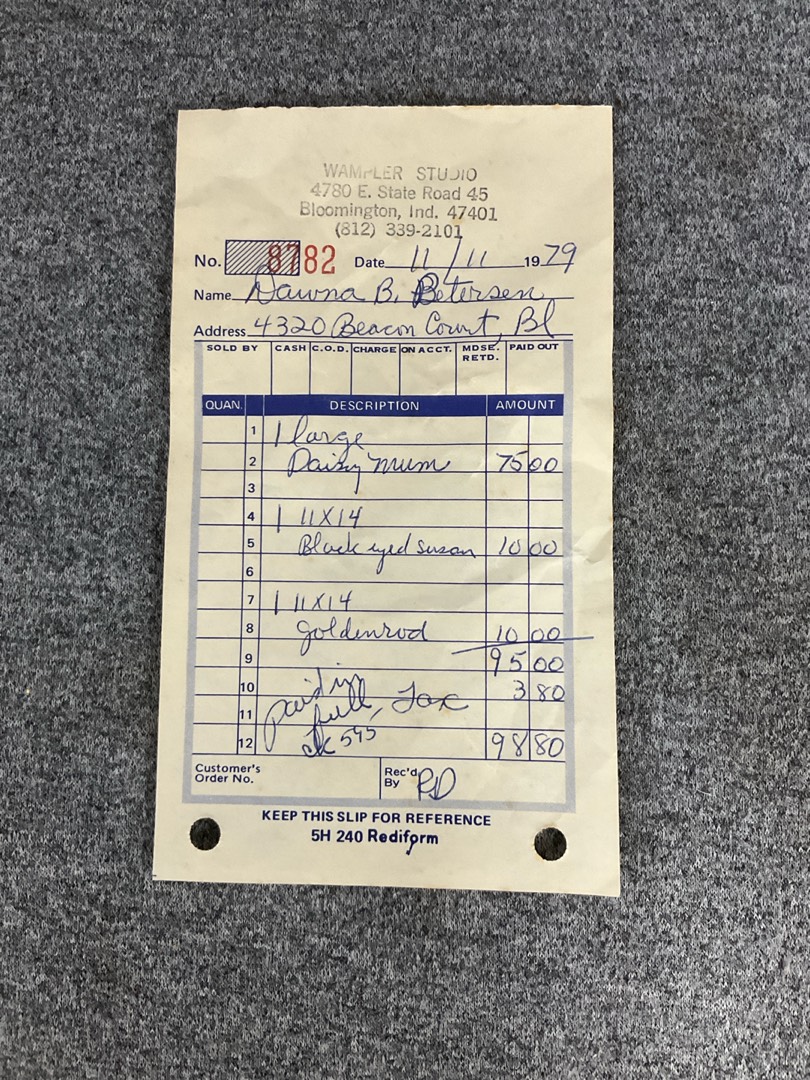 WAMPLER STUDIO
4780 E. State Road 45
Bloomington, Ind. 47401
(812) 339-2101
No. 8782 Date 11/11 1979
Name Dawna B. Petersen
Address 4320 Beacon Court, Bl
SOLD BY CASH C.O.D. CHARGE ON ACCT. MDSE. RETD. PAID OUT
QUAN. DESCRIPTION AMOUNT
1 1 large
2 Daisy Mum 75 00
3
4 1 11X14
5 Black eyed susan 10 00
6
7 1 11X14
8 goldenrod 10 00
9 95 00
10 paid in 3 80
11 full, Tax
12 ck 595 98 80
Customer's Order No. Rec'd By RD
KEEP THIS SLIP FOR REFERENCE
5H 240 Rediform